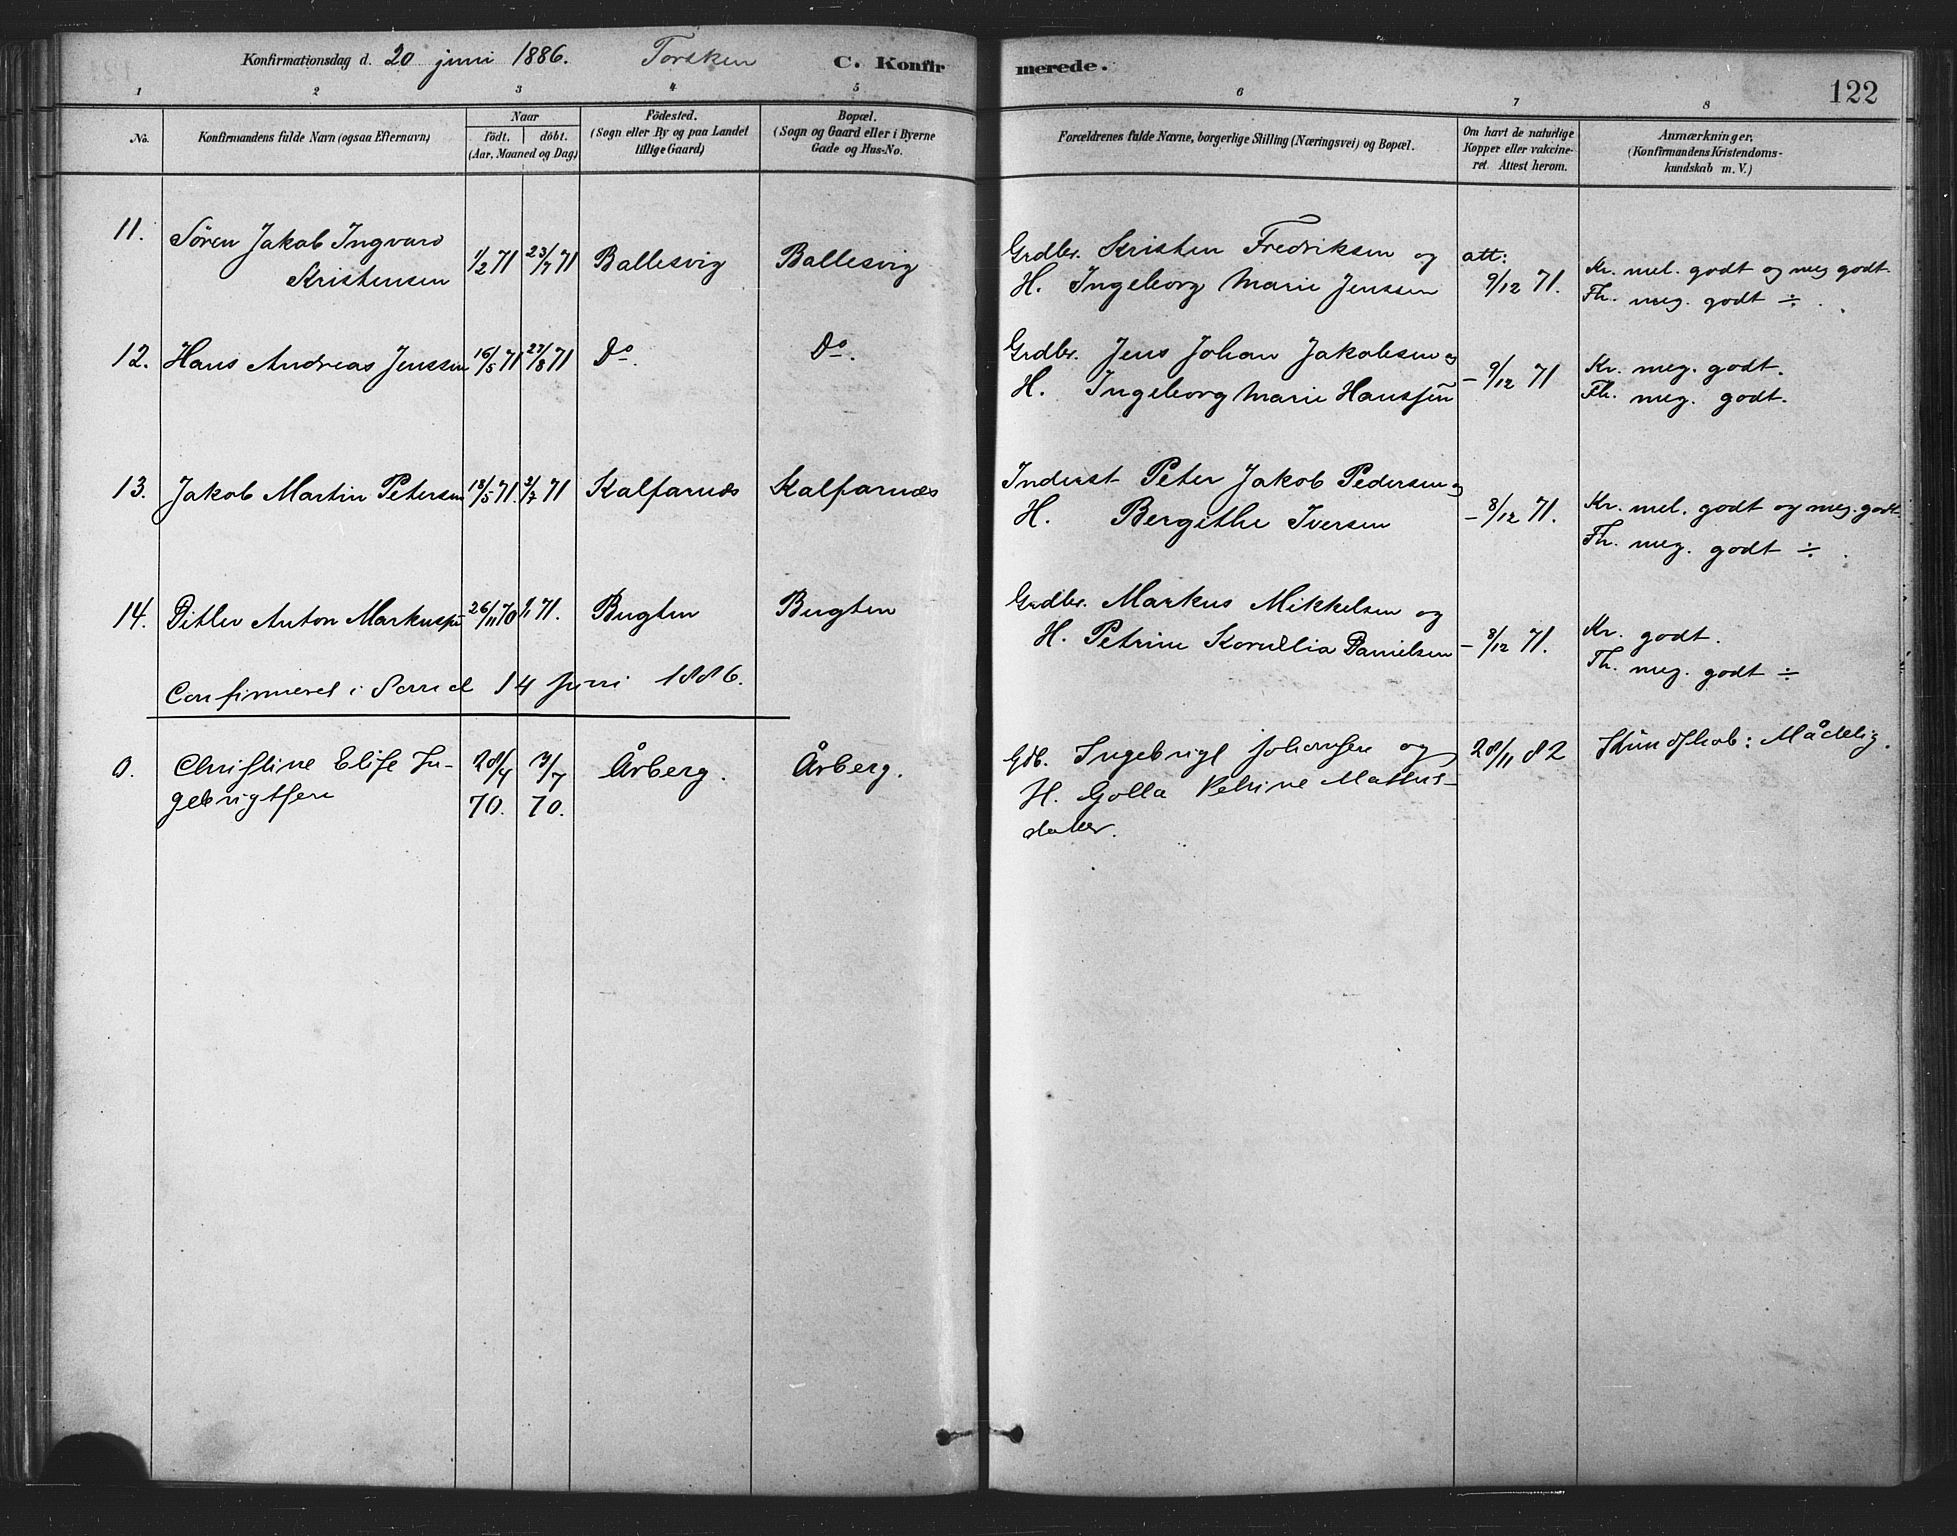 Konfirmationsdag d. 20 juni 1886. Torsken C. Konfirmerede. 122
1 2 3 4 5 6 7 8
No. Konfirmandens fulde Navn (ogsaa Efternavn) Naar födt. döbt. (Aar, Maaned og Dag) Födested. (Sogn eller By og paa Landet tillige Gaard) Bopæl. (Sogn og Gaard eller i Byerne Gade og Hus-No. Forældrenes fulde Navne, borgerlige Stilling (Næringsvei) og Bopæl. Om havt de naturlige Kopper eller vakcineret. Attest herom. Anmærkninger, (Konfirmandens Kristendomskundskab m. V.)
11. Sören Jakob Ingvard Grdbr. Kristen Fredriksen og att:
Kristensen 1/2 71 23/7 71 Ballesvig Ballesvig H. Ingeborg Marie Jenssen 9/12 71. Kr. mel. godt og meg godt.
Th. meg. godt ÷ .
12. Hans Andreas Jenssen 16/5 71 27/8 71 Do. Do. Grdbr. Jens Johan Jakobsen og
H. Ingeborg Marie Hanssen – 9/12 71 Kr. meg. godt.
Th. meg. godt.
13. Jakob Martin Petersen 18/5 71. 2/7 71 Kalfarnæs Kalfarnæs Inderst Peter Jakob Pedersen og
H. Bergithe Iversen – 8/12 71. Kr. mel. godt og meg. godt.
Th. meg. godt ÷ .
14. Ditlev Anton Markussen 26/11 70 71. Bugten Bugten Grdbr. Markus Mikkelsen og
H. Petrine Kornellia Danielsen – 8/12 71. Kr. godt.
Th. meg. godt ÷
Confirmeret i Sand 14 Juni 1886.
0. Christine Elise In- 28/4 3/7 Årberg. Årberg. Gdb. Ingebrigt Johansen og 28/11 82 Kundskab: Mådelig.
gebrigtsen 70. 70. H. Golla Petrine Mathis-
datter.